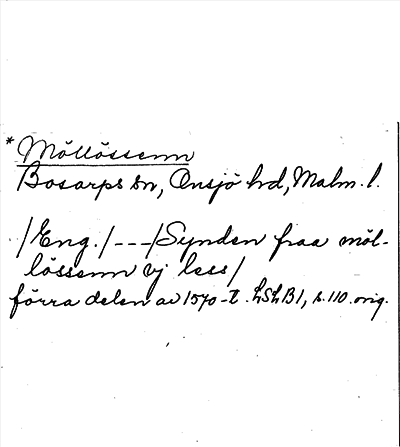 * Möllössenn
Bosarps sn, Onsjö hd, Malm. l.
/Eng./---/Synden fraa möl-
lössenn vj less/
förra delen av 1570-t. LSLB1, s. 110. orig.